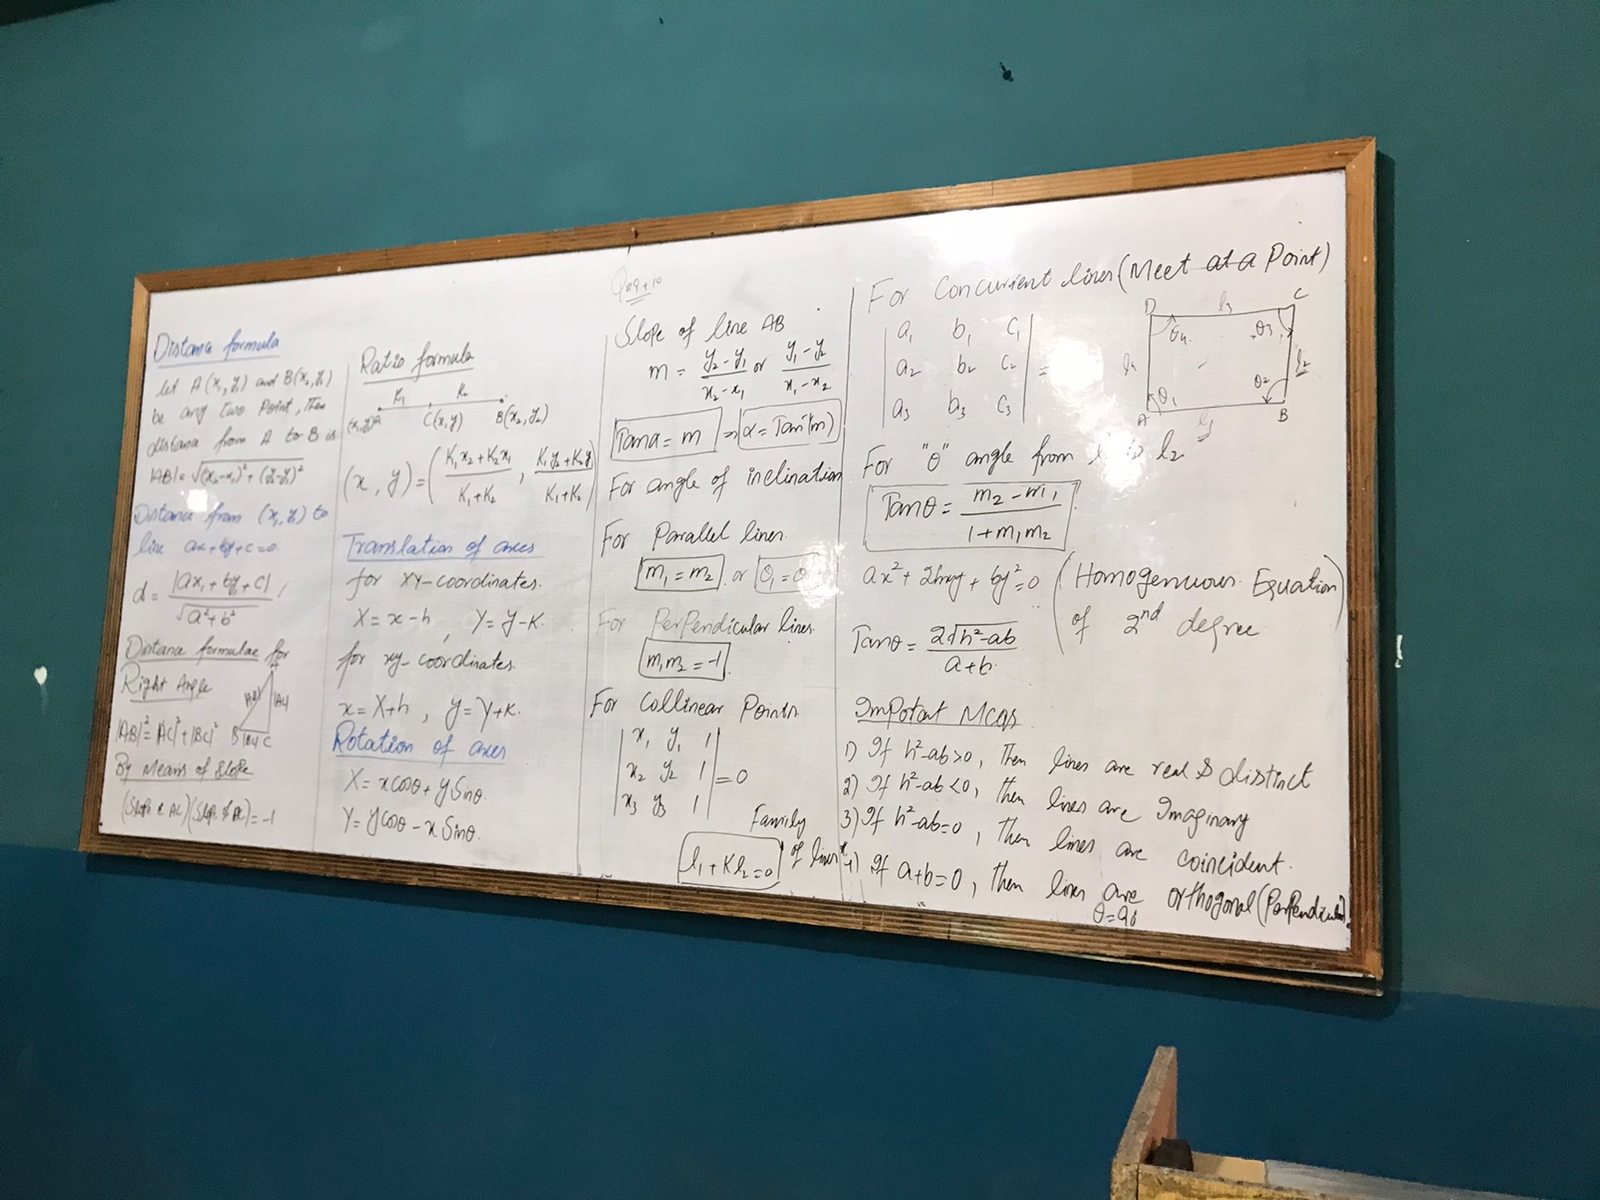 Distance formula
let A(x₁, y₁) and B(x₂, y₂)
be any two Point, Then
distance from A to B is
|AB| = √(x₂-x₁)² + (y₂-y₁)²
Distance from (x₁, y₁) to
line ax+by+c=0.
d = |ax₁ + by₁ + c| / √a²+b²
Distance formulae for
Right Angle
|AB|² = |AC|² + |BC|²
|AB| |AC|
B |BC| C
By Means of Slope
(Slope of AC)(Slope of BC) = -1
Ratio formula
K₁ K₂
(x₁,y₁)A C(x,y) B(x₂, y₂)
(x , y) = (K₁x₂+K₂x₁ / K₁+K₂ , K₁y₂+K₂y₁ / K₁+K₂)
Translation of axes
for XY-coordinates.
X = x-h , Y = y-K.
for xy-coordinates.
x = X+h , y = Y+K.
Rotation of axes
X = xcosθ + ySinθ.
Y = ycosθ - xSinθ.
Slope of line AB
m = y₂-y₁ / x₂-x₁ or y₁-y₂ / x₁-x₂
Tanα = m ⇒ α = Tan⁻¹(m)
For angle of inclination
For Parallel lines.
m₁ = m₂ or
For Perpendicular lines.
m₁m₂ = -1
For Collinear Points
x₁ y₁ 1
x₂ y₂ 1 = 0
x₃ y₃ 1
Family
l₁ + Kl₂ = 0 of lines
For Concurrent lines (Meet at a Point)
a₁ b₁ c₁
a₂ b₂ c₂ =
a₃ b₃ c₃
D l₃ C
θ₄ θ₃
l₄ l₂
θ₁ θ₂
A l₁ B
For "θ" angle from l₁ to l₂
Tanθ = m₂-m₁ / 1+m₁m₂
ax² + 2hxy + by² = 0 (Homogenuous Equation
of 2nd degree
Tanθ = 2√h²-ab / a+b
Impotat Mcqs
1) If h²-ab>0, Then lines are real & distinct
2) If h²-ab<0, then lines are Imaginary
3) If h²-ab=0, then lines are coincident.
4) If a+b=0, then lines are orthogonal (Perpendicular).
θ=90